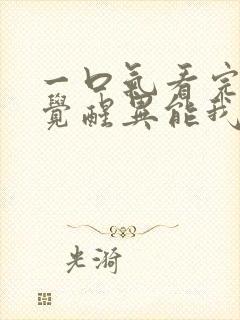 一口氣看完
覺醒異能我
光漪